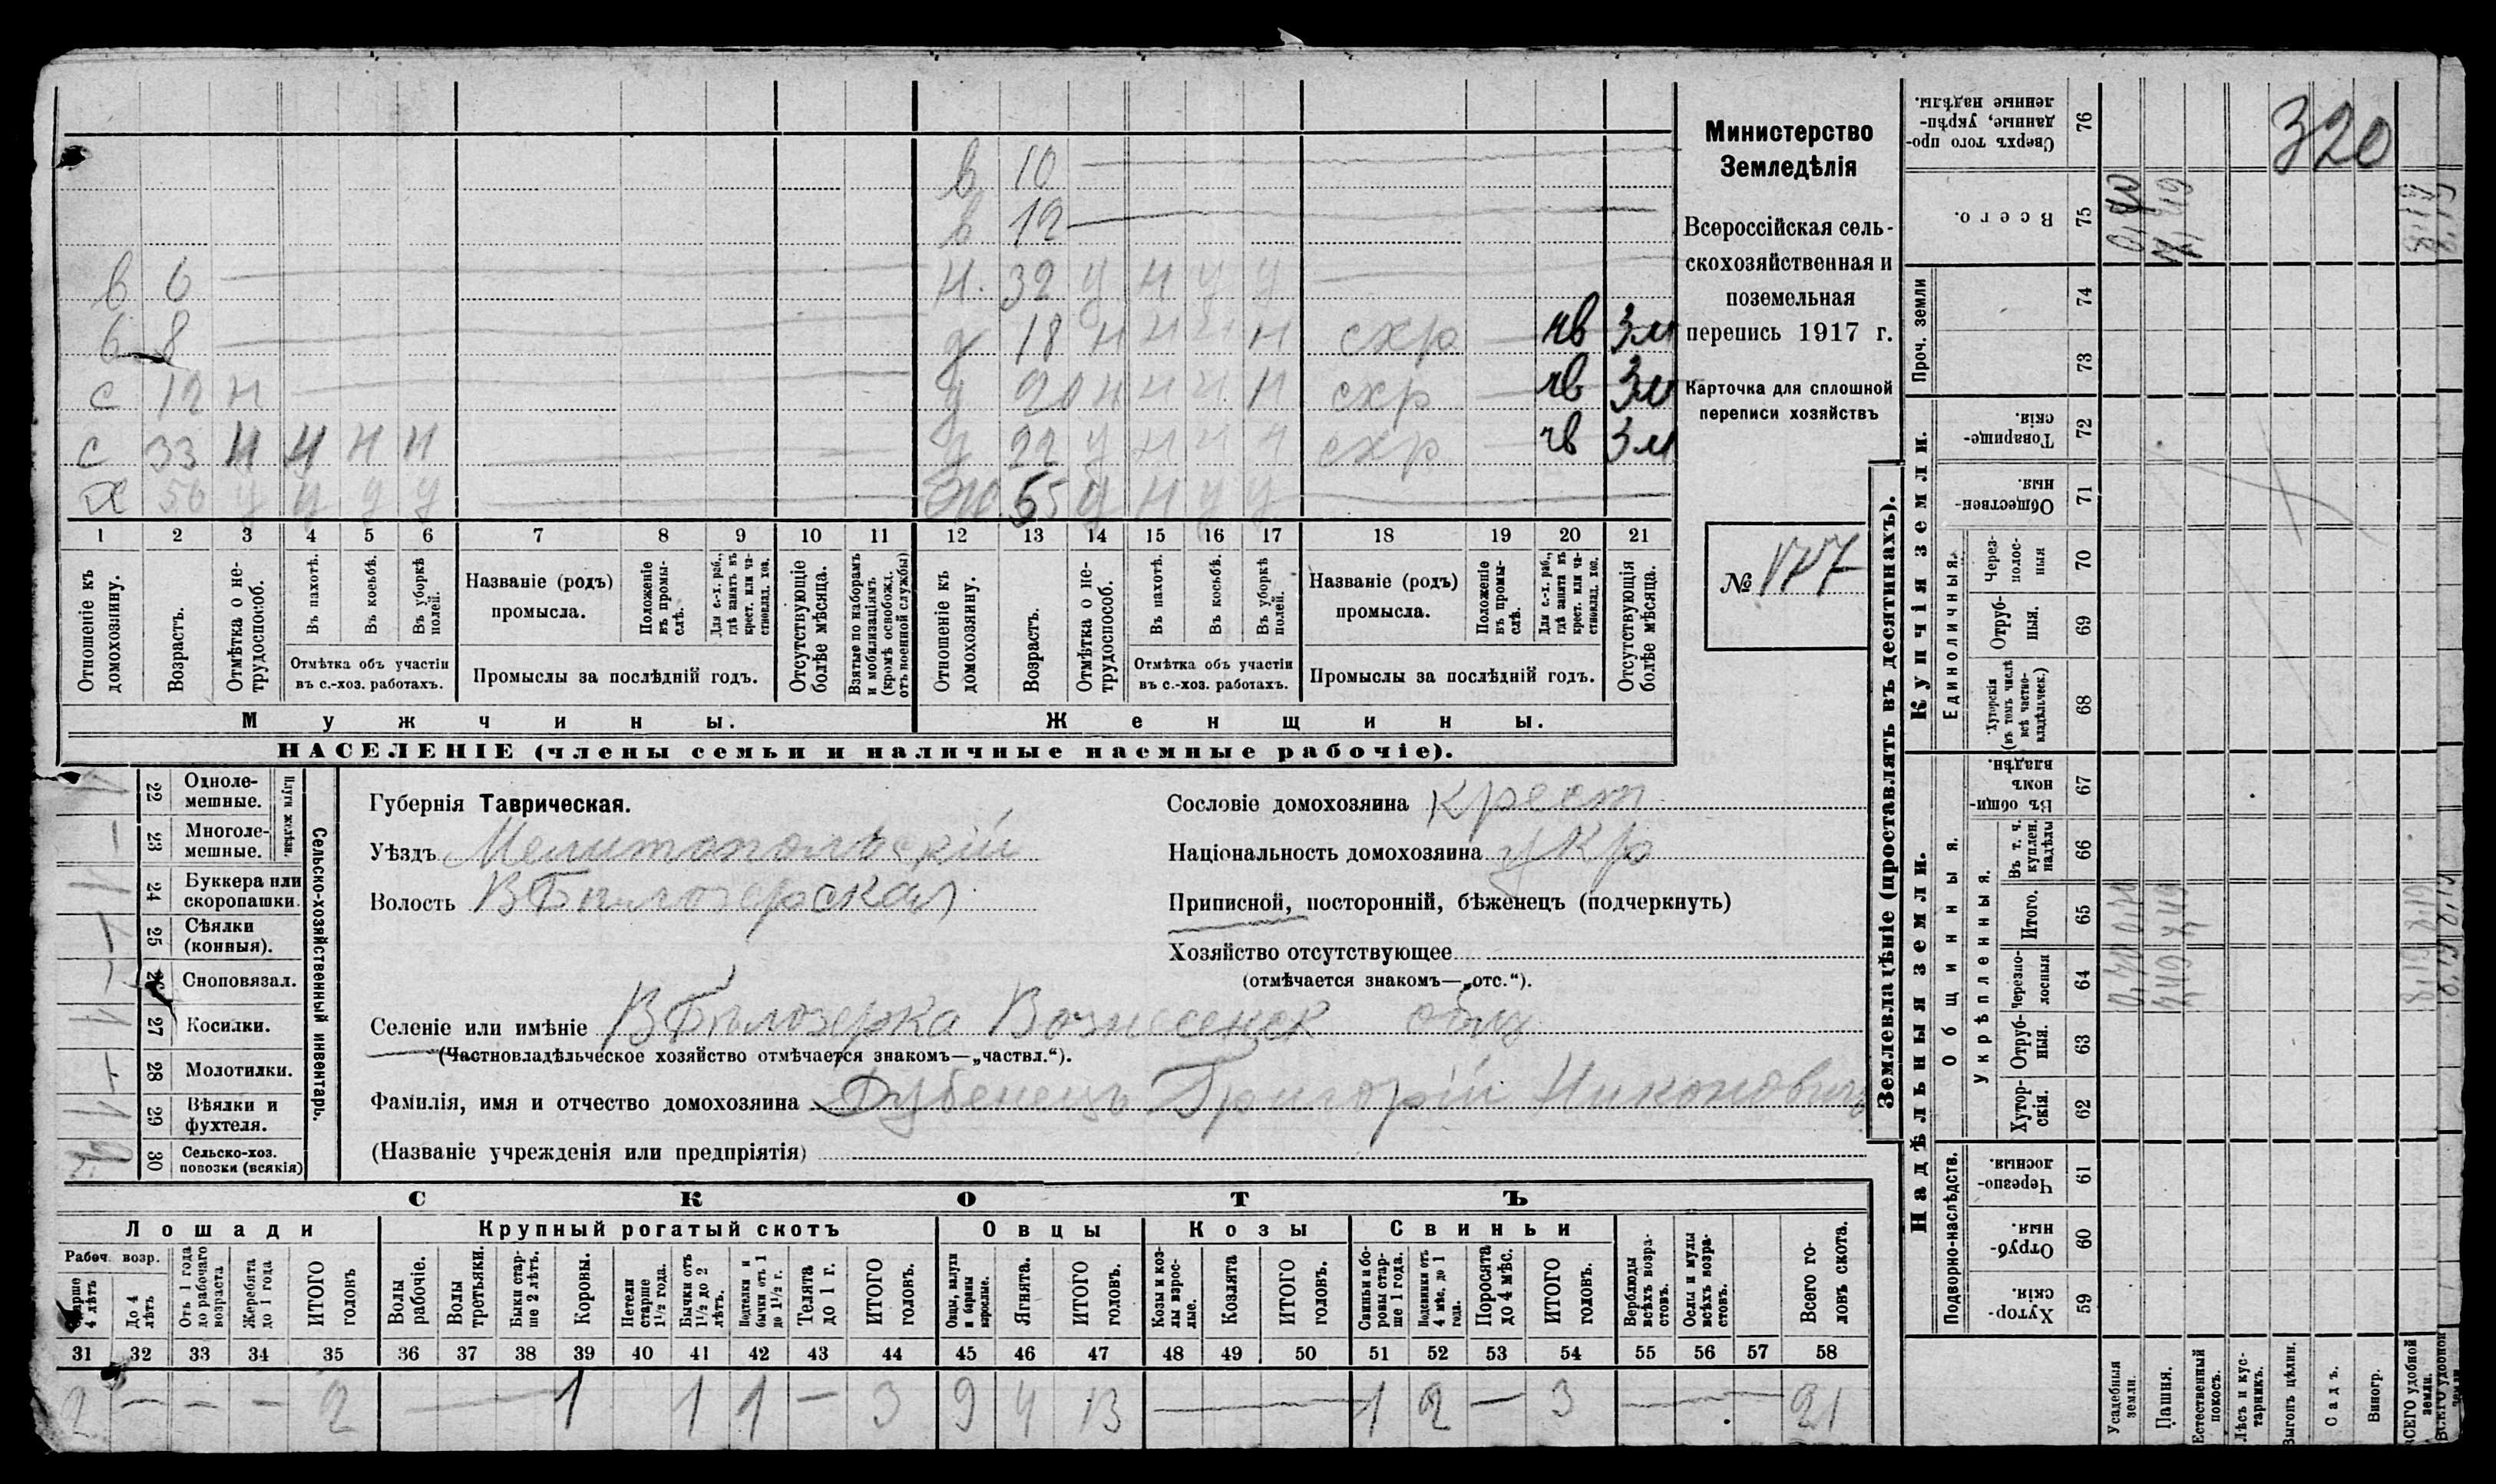 в 10
в 12
в 6 н. 32 у н у у
в 8 д 18 н н н н схр чв 3м
с 12 н д 20 н н н н схр чв 3м
с 33 н н н н д 22 у н н н схр чв 3м
х 56 у у у у ж 55 у н у у
1 2 3 4 5 6 7 8 9 10 11 12 13 14 15 16 17 18 19 20 21
Отношеніе къ домохозяину.
Возрастъ.
Отмѣтка о не-трудоспособ.
Въ пахотѣ.
Въ косьбѣ.
Въ уборкѣ полей.
Отмѣтка объ участіи
въ с.-хоз. работахъ.
Названіе (родъ)
промысла.
Положеніе въ промы-слѣ.
Для с.-х. раб., гдѣ занятъ въ крест. или ча-стновлад. хоз.
Промыслы за послѣдній годъ.
Отсутствующіе болѣе мѣсяца.
Взятые по наборамъ и мобилизаціямъ (кромѣ освобожд. отъ военной службы)
Отношеніе къ домохозяину.
Возрастъ.
Отмѣтка о не-трудоспособ.
Въ пахотѣ.
Въ косьбѣ.
Въ уборкѣ полей.
Отмѣтка объ участіи
въ с.-хоз. работахъ.
Названіе (родъ)
промысла.
Положеніе въ промы-слѣ.
Для с.-х. раб., гдѣ занята въ крест. или ча-стновлад. хоз.
Промыслы за послѣдній годъ.
Отсутствующія болѣе мѣсяца.
Мужчины.
Женщины.
НАСЕЛЕНІЕ (члены семьи и наличные наемные рабочіе).
Министерство
Земледѣлія
Всероссійская сель-
скохозяйственная и
поземельная
перепись 1917 г.
Карточка для сплошной
переписи хозяйствъ
№ 177
22 Одноле-мешные.
23 Многоле-мешные.
Плуги желѣзн.
24 Буккера или скоропашки.
25 Сѣялки (конныя).
26 Сноповязал.
27 Косилки.
28 Молотилки.
29 Вѣялки и фухтеля.
30 Сельско-хоз. повозки (всякія)
Сельско-хозяйственный инвентарь.
Губернія Таврическая.
Уѣздъ Мелитопольскій
Волость ВБѣлозерская
Сословіе домохозяина крест
Національность домохозяина укр
Приписной, посторонній, бѣженец (подчеркнуть)
Хозяйство отсутствующее
(отмѣчается знакомъ—„отс.“).
Селеніе или имѣніе ВБѣлозерка Вознесенск общ
(Частновладѣльческое хозяйство отмѣчается знакомъ—„частвл.“).
Фамилія, имя и отчество домохозяина Дубенецъ Григорій Никоновичъ
(Названіе учрежденія или предпріятія)
СКОТЪ
Лошади
Крупный рогатый скотъ
Овцы
Козы
Свиньи
Рабоч. возр.
Старше 4 лѣтъ
До 4 лѣтъ
Отъ 1 года до рабочаго возраста
Жеребята до 1 года
ИТОГО головъ
Волы рабочіе.
Волы третьяки.
Быки стар-ше 2 лѣтъ.
Коровы.
Нетели старше 1½ года.
Бычки отъ 1½ до 2 лѣтъ.
Подтелки и бычки отъ 1 до 1½ г.
Телята до 1 г.
ИТОГО головъ.
Овцы, валухи и бараны взрослые.
Ягнята.
ИТОГО головъ.
Козы и коз-лы взрос-лые.
Козлята
ИТОГО головъ.
Свиньи и бо-ровы стар-ше 1 года.
Подсвинки отъ 4 мѣс. до 1 года.
Поросята до 4 мѣс.
ИТОГО головъ.
Верблюды всѣхъ возра-стовъ.
Ослы и мулы всѣхъ возра-стовъ.
Всего го-ловъ скота.
31 32 33 34 35 36 37 38 39 40 41 42 43 44 45 46 47 48 49 50 51 52 53 54 55 56 57 58
2 — — — 2 — 1 1 1 — 3 9 4 13 — 1 2 — 3 — 21
Землевладѣніе (проставлять въ десятинахъ).
Надѣльныя земли.
Купчія земли.
Проч. земли
Сверхъ того про-данные, укрѣп-ленные надѣлы. 76
320
Всего. 75
74
73
Товарище-скія. 72
Обществен-ныя. 71
Единоличныя.
Через-полос-ныя 70
Отруб-ныя. 69
Хуторскія (въ томъ числѣ всѣ частно-владѣльческ.) 68
Общинныя.
Въ общин-номъ владѣн. 67
Укрѣпленныя.
Въ т. ч. куплен. надѣлы 66
Итого. 65
Черезпо-лосныя 64
Отруб-ныя. 63
Хутор-скія. 62
Подворно-наслѣдств.
Черезпо-лосныя. 61
Отруб-ныя. 60
Хутор-скія. 59
Усадебныя земли.
Пашня.
Естественный покосъ.
Лѣсъ и кус-тарникъ.
Выгонъ цѣлин.
Садъ.
Виногр.
ВСЕГО удобной земли.